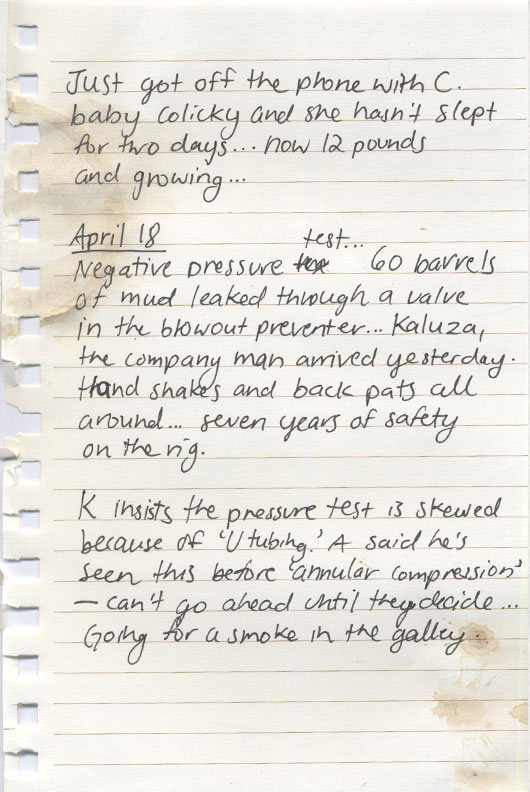 Just got off the phone with C.
baby colicky and she hasn't slept
for two days... now 12 pounds
and growing...
April 18
test...
Negative pressure 60 barrels
of mud leaked through a valve
in the blowout preventer... Kaluza,
the company man arrived yesterday.
Hand shakes and back pats all
around... seven years of safety
on the rig.
K insists the pressure test is skewed
because of 'U tubing.' A said he's
seen this before 'annular compression'
— can't go ahead until they decide...
Going for a smoke in the galley.